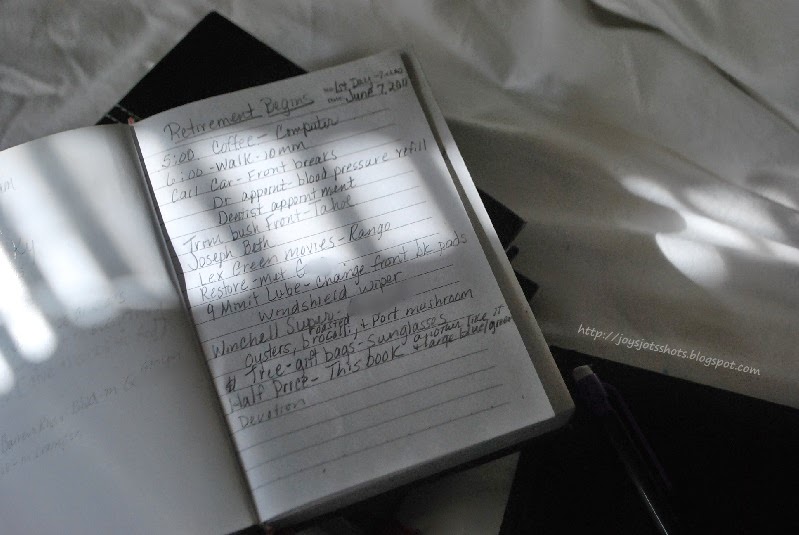 Retirement Begins
Day
June 7, 2011
5:00 Coffee - Computer
6:00 - Walk - 10mm
Call Car - Front breaks
Dr appomt - blood pressure refill
Dentist appointment
Trim bush front - Tahoe
Joseph Beth
Lex Green movies - Rango
Restore - met
9 Minit Lube - change front bk pads
Windshield Wiper
Winchell Super:
roasted
oysters, brocolli, + Port meshroom
$ Tree - gift bags - sunglasses
Half Price - This book -
& large blue/green
Devotion
http://joysjotsshots.blogspot.com